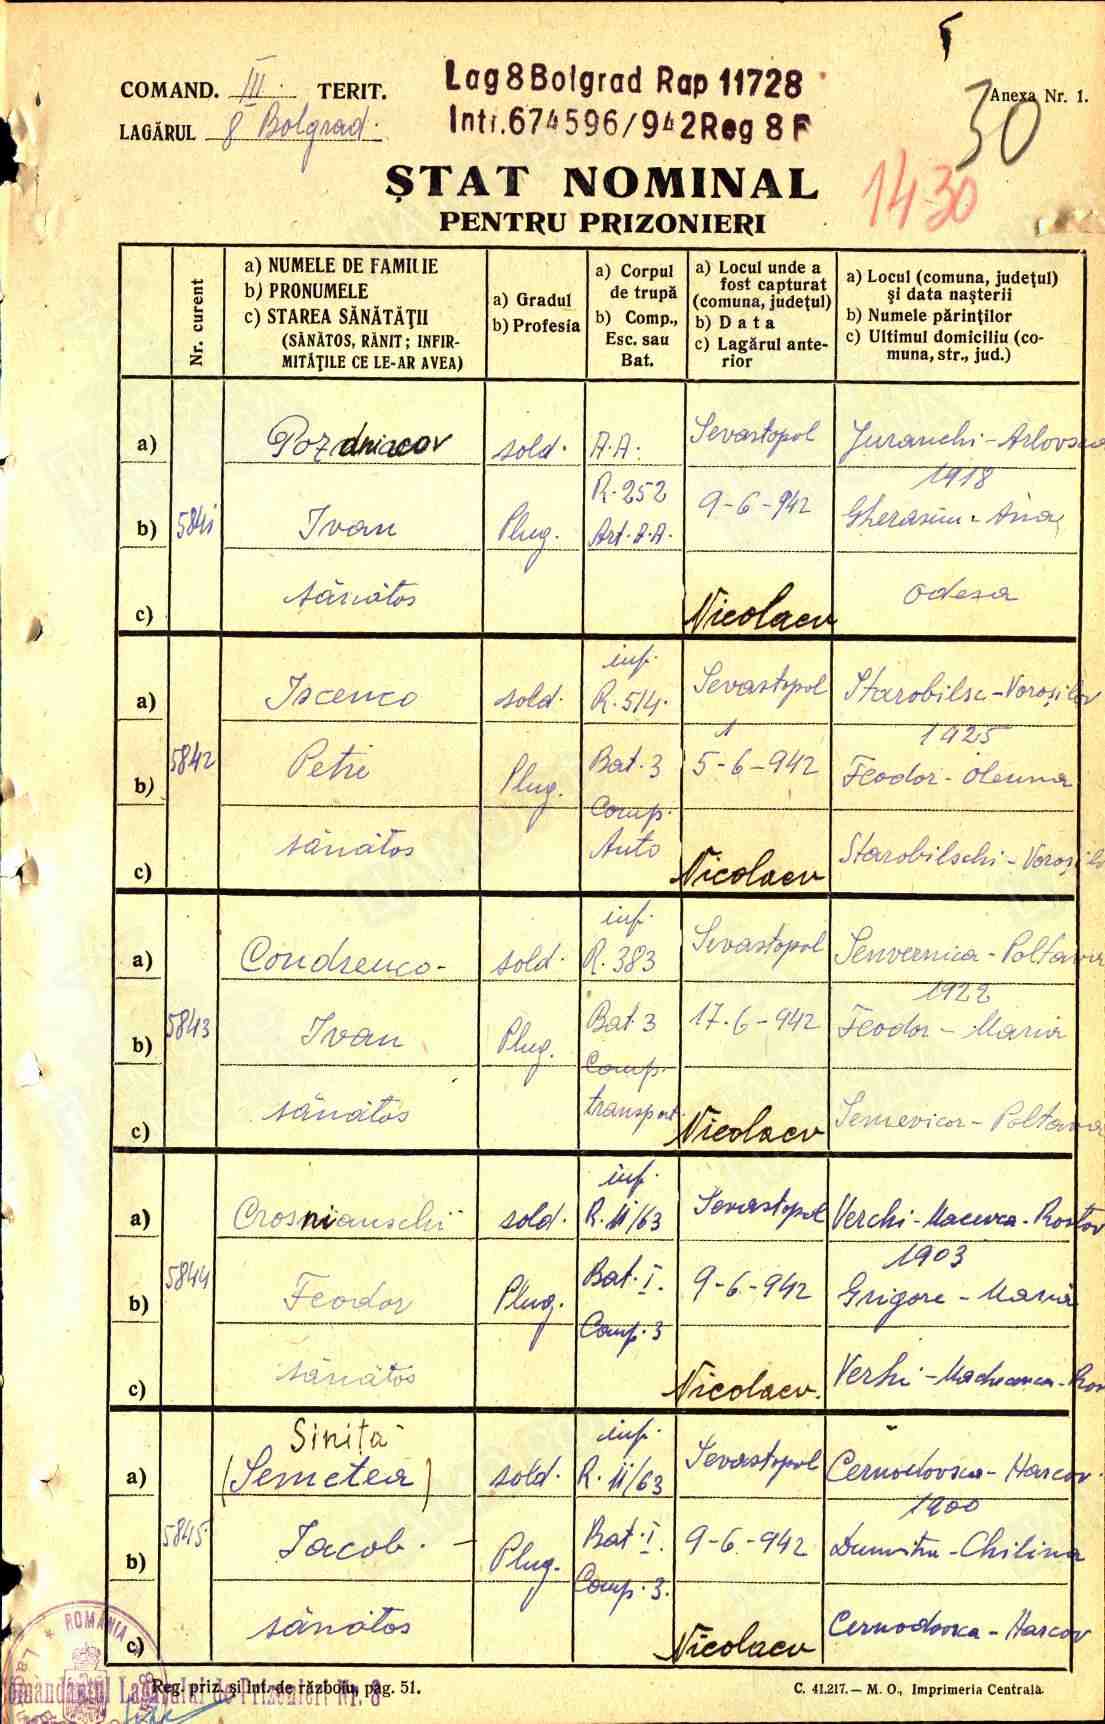 COMAND. III. TERIT.
LAGĂRUL 8 Bolgrad.
Lag 8 Bolgrad Rap 11728
Inti. 674596/942 Reg 8 F
Anexa Nr. 1.
30
1430
ȘTAT NOMINAL
PENTRU PRIZONIERI
Nr. curent
a) NUMELE DE FAMILIE
b) PRONUMELE
c) STAREA SĂNĂTĂȚII
(SĂNĂTOS, RĂNIT; INFIR-
MITĂȚILE CE LE-AR AVEA)
a) Gradul
b) Profesia
a) Corpul
de trupă
b) Comp.,
Esc. sau
Bat.
a) Locul unde a
fost capturat
(comuna, județul)
b) Data
c) Lagărul ante-
rior
a) Locul (comuna, județul)
și data nașterii
b) Numele părinților
c) Ultimul domiciliu (co-
muna, str., jud.)
5841
a) Pozdniacov sold. A.A. Sevastopol
1918
b) Ivan Plug. R. 252 Art. A.A. 9-6-942 Gherasim - Ana
c) sănătos Nicolaev Odesa
5842
a) Iscenco sold. inf. R. 514. Sevastopol Starobilsc - Voroșilov
1925
b) Petre Plug. Bat. 3 5-6-942 Feodor - Olenna
Comp. Auto
c) sănătos Nicolaev Starobilschi -
5843
a) Condrenco - sold. inf. R. 383 Sevastopol Senvernica - Poltava
1922
b) Ivan Plug. Bat. 3 17-6-942 Feodor - Maria
Comp. transport
c) sănătos Nicolaev Semevicor - Poltava
5844
a) Crosnianschi sold. inf. R. II/63 Sevastopol Verchi - - Rostov
1903
b) Feodor Plug. Bat. I. 9-6-942 Grigore - Maria
Comp. 3
c) sănătos Nicolaev. Verhi -
5845
Siniță
a) (Semetea) sold. inf. R. II/63 Sevastopol Cernodovsca - Harcov.
1900
b) Iacob. - Plug. Bat. I. 9-6-942 Dumitru - Chilina
Comp. 3.
c) sănătos Nicolaev Cernodovsca - Harcov
ROMÂNIA
Comandantul Lagărului de Prizonieri Nr. 8
Reg. priz. și int. de războiu, pag. 51.
C. 41.217. — M. O., Imprimeria Centrală.